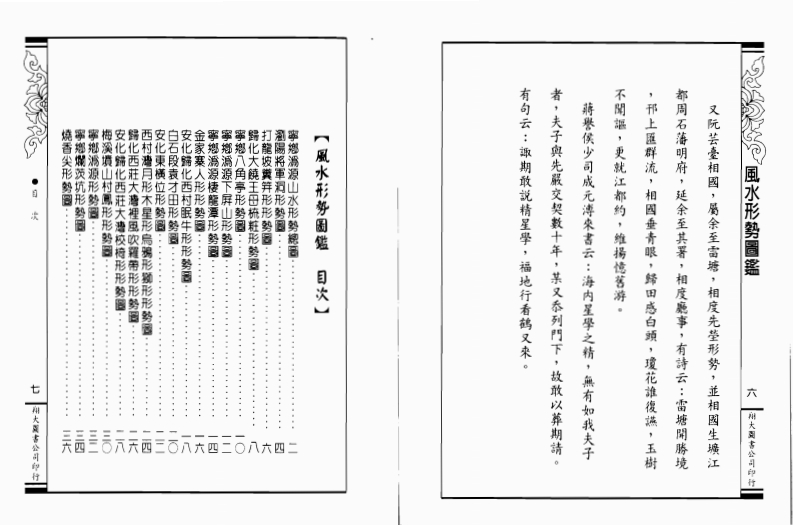 風水形勢圖鑑
又阮芸臺相國，屬余至雷塘，相度先塋形勢，並相國生壙江
都周石藩明府，延余至其署，相度廳事，有詩云：雷塘開勝境
，邗上匯群流，相國垂青眼，歸田感白頭，瓊花誰復讌，玉樹
不聞謳，更就江都約，維揚憶舊游。
蔣譽侯少司成元溥來書云：海内星學之精，無有如我夫子
者，夫子與先嚴交契數十年，某又忝列門下，故敢以葬期請。
有句云：諏期敢説精星學，福地行看鶴又來。
六
翔大圖書公司印行
【風水形勢圖鑑　目次】
寧鄉溈源山水形勢總圖 二
瀏陽將軍洞形勢圖 四
打龍坡糞箕形形勢圖 六
歸化大饒王田梳粧形勢圖 八
寧鄉八角亭形勢圖 一〇
寧鄉溈源下屏山形勢圖 一二
寧鄉溈源棲龍潭形勢圖 一四
金家寨人形形勢圖 一六
安化歸化西村眠牛形形勢圖 一八
白石段袁才田形勢圖 二〇
安化東橫位形勢圖 二二
西村灣月形木星形烏鴉形獅形形勢圖 二四
歸化西莊大灣裡風吹羅帶形形勢圖 二六
安化歸化西莊大灣校椅形形勢圖 二八
梅溪墳山村鳳形形勢圖 三〇
寧鄉溈源形勢圖 三二
寧鄉爛茨坑形勢圖 三四
燒香尖形勢圖 三六
●目次
七
翔大圖書公司印行